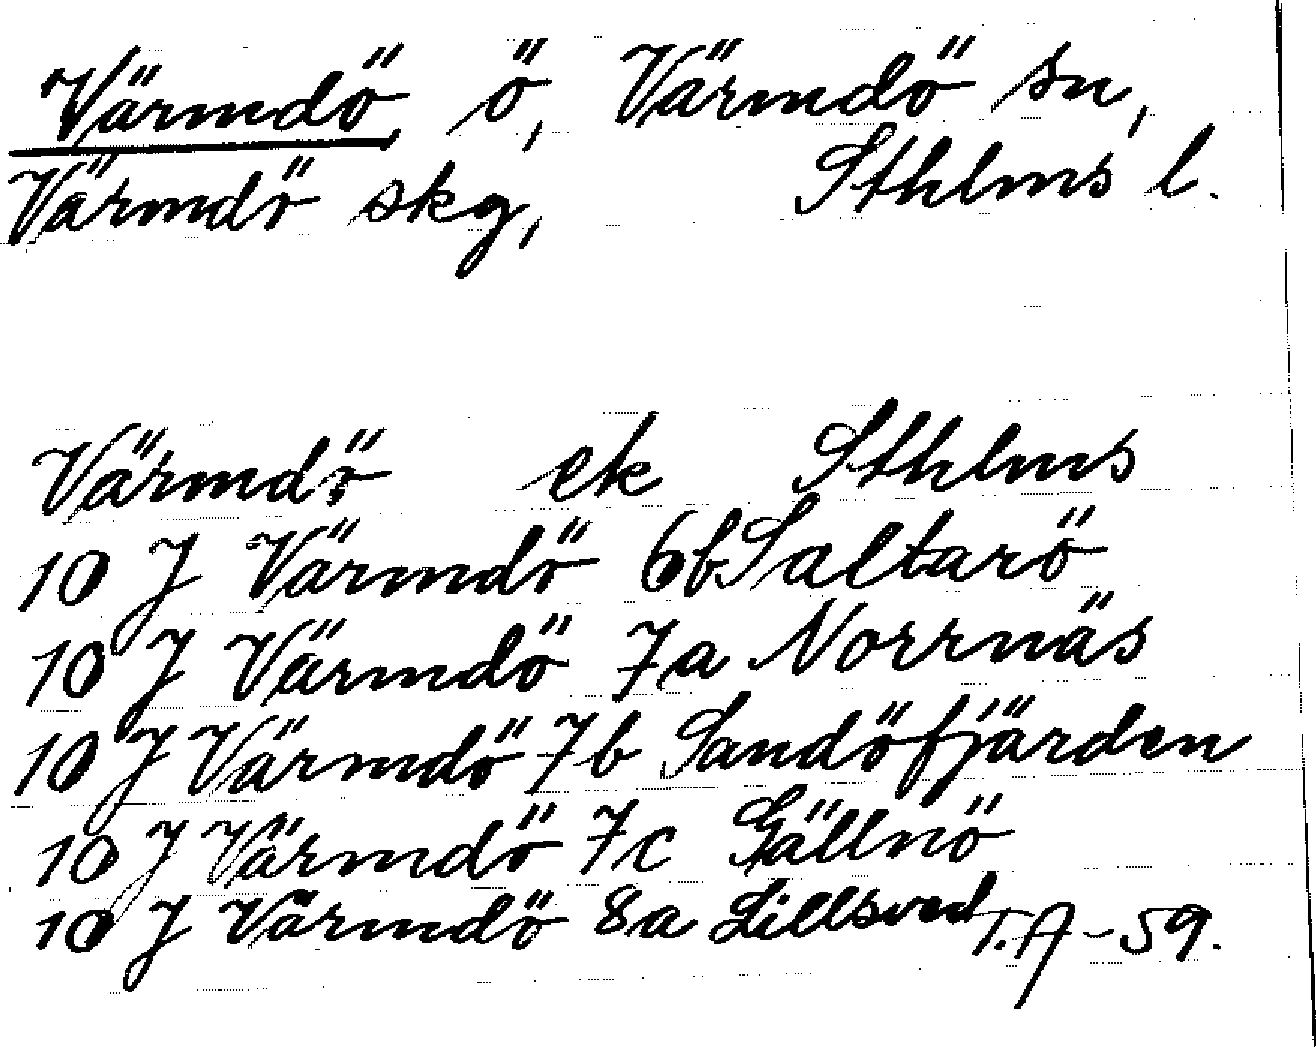 Värmdö, ö, Värmdö sn,
Värmdö skg, Sthlms l.
Värmdö ek Sthlms
10 J Värmdö 6b Saltarö
10 J Värmdö 7a Norrnäs
10 J Värmdö 7b Sandöfjärden
10 J Värmdö 7c Gällnö
10 J Värmdö 8a Lillsved T.A-59.